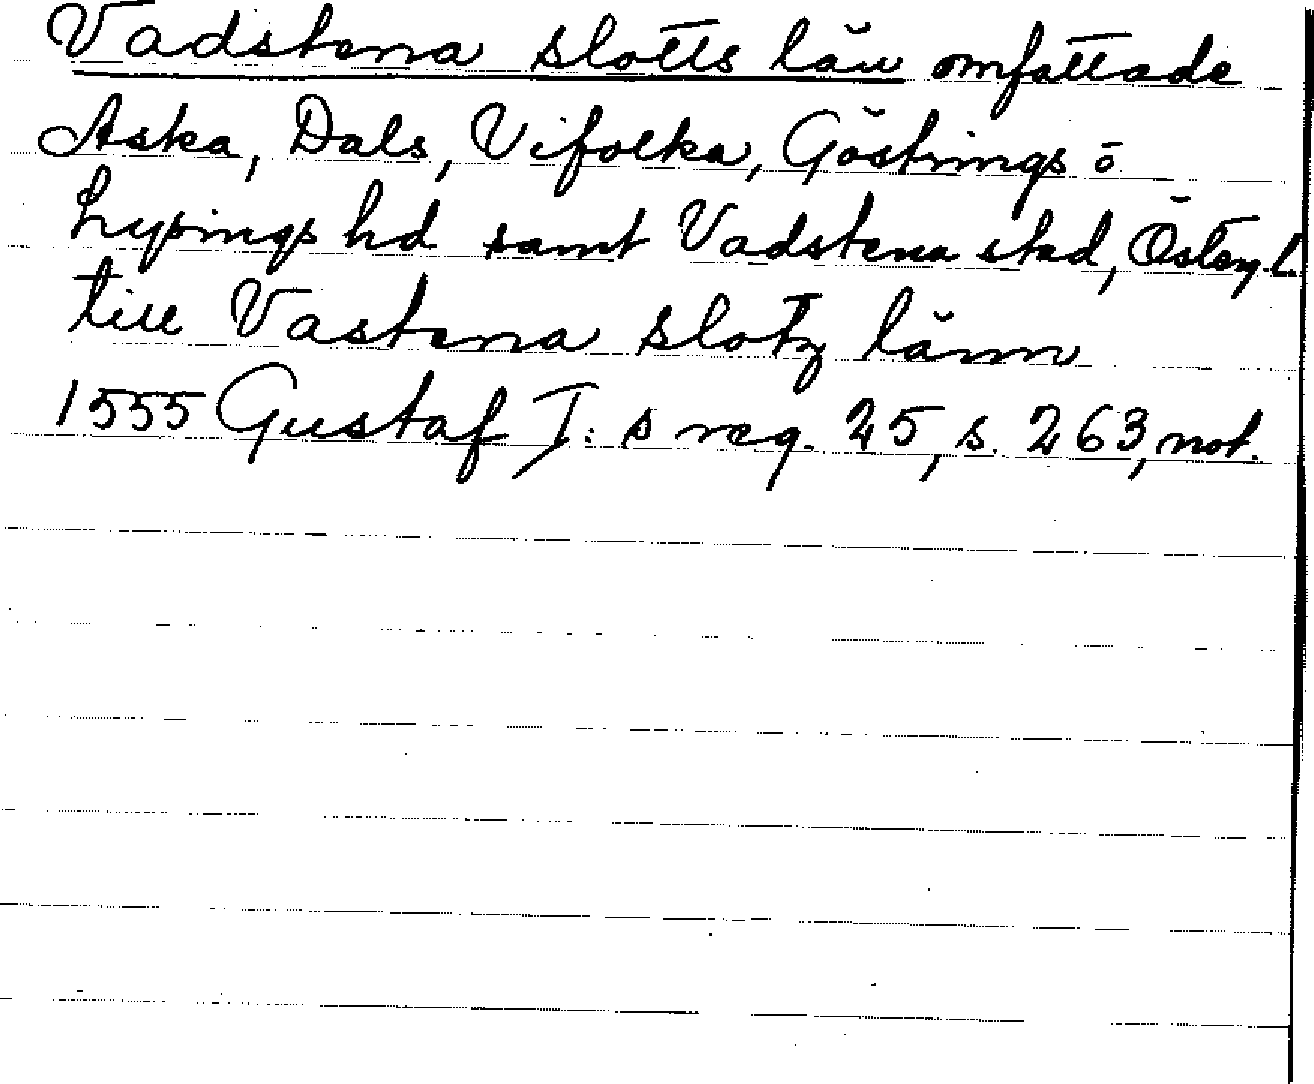 Vadstena slotts län omfattade
Aska, Dals, Vifolka, Göstrings o
Lysings hd samt Vadstena stad, Österg. L.
till Vastena slotz länn
1555 Gustaf I:s reg. 25, s. 263, not.